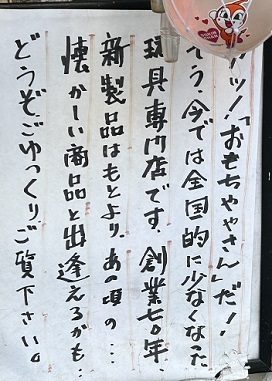 アッ!「おもちゃやさん」だ!
そう、今では全国的に少なくなった
玩具専門店です。創業七〇年、
新製品はもとより、あの頃の…
懐かしい商品と出逢えるかも…
どうぞ、ごゆっくり、ご覧下さい。